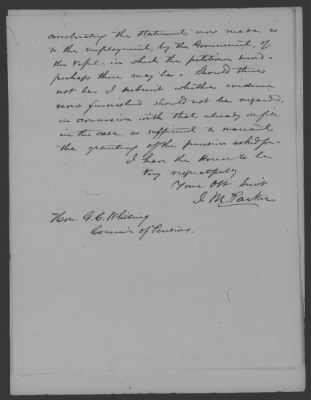 corroborating the statement now made as
to the employment, by the Government, of
the Vessel in which the petitioner served -
perhaps there may be. Should there
not be I submit whether evidence
now furnished should not be regarded,
in connexion with that already on file
in the case, as sufficient to warrant
the granting of the pension asked for.
I have the honor to be
Very respectfully
Your Obt Servt
J. M. Parker
Hon. G. C. Whiting
Commr of Pensions,